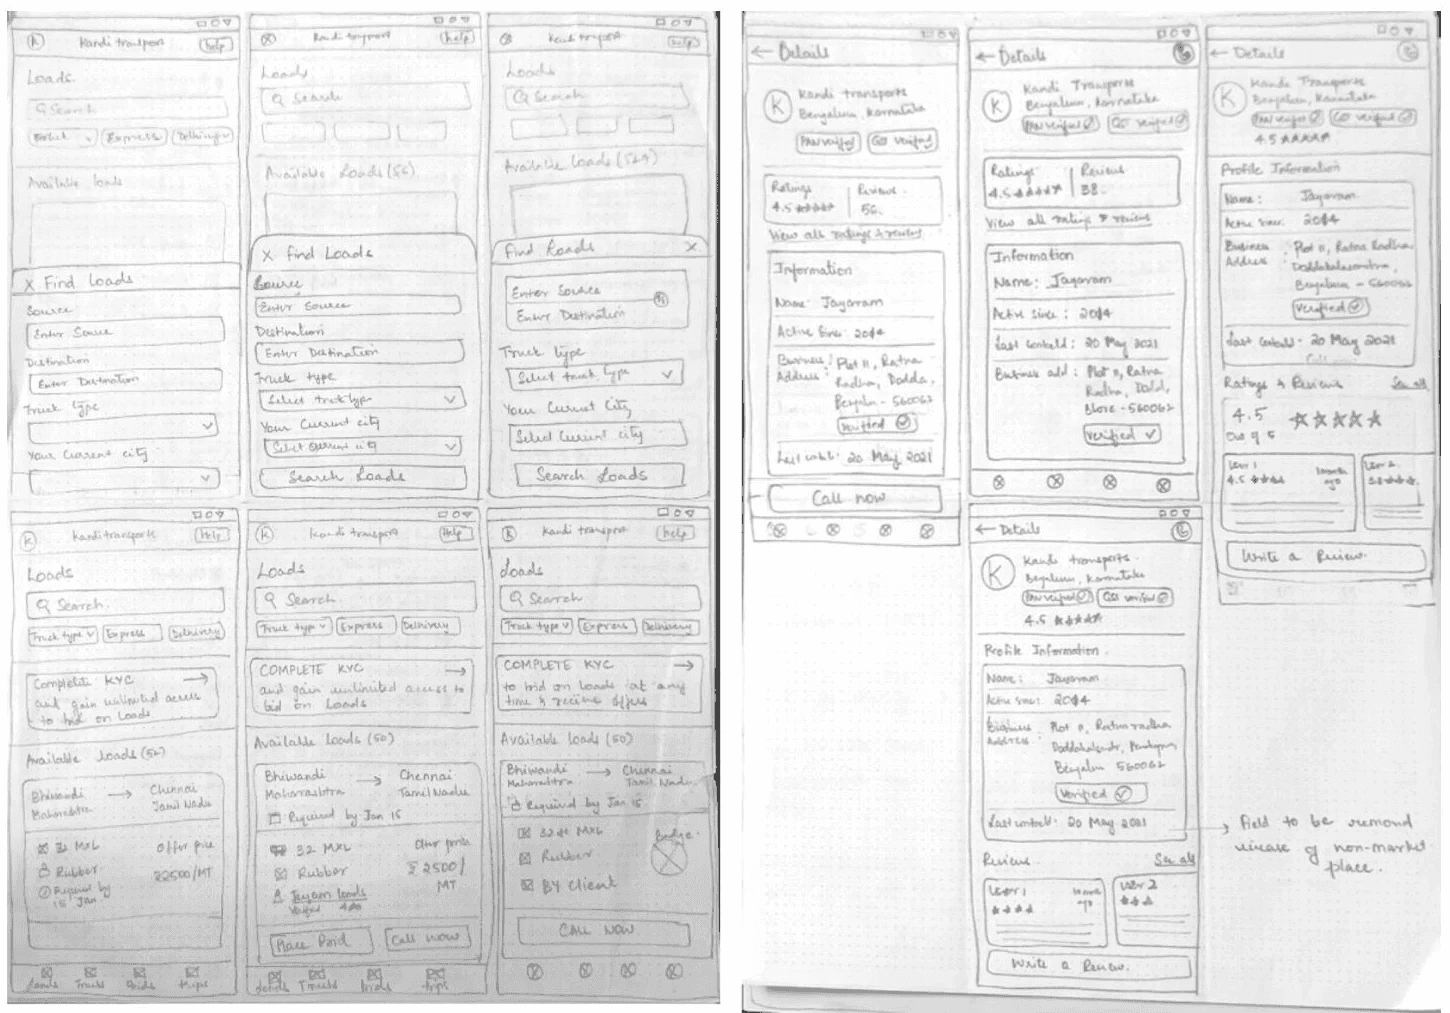 Kandi transport
help
Loads.
Search
Express
Delhivery
Available loads
X Find Loads
Source
Enter Source
Destination
Enter Destination
Truck type
Your Current city
Kandi transport
help
Loads
Search
Available Loads (56)
X Find Loads
Source
Enter Source
Destination
Enter Destination
Truck type
Select truck type
Your Current city
Select Current city
Search Loads
help
Loads
Search
Available loads
Find Loads X
Enter Source
Enter Destination
Truck type
Select truck type
Your Current City
Select Current city
Search Loads
K Kandi transports Help
Loads
Search
Truck type Express Delhivery
Complete KYC
and gain unlimited access
to bid on Loads
Available Loads (50)
Bhiwandi → Chennai
Maharashtra Tamil Nadu
32 MXL Offer price
Rubber
Required by
15 Jan
Loads Trucks Bids trips
K Kandi transport Help
Loads
Search.
Truck type Express Delhivery
COMPLETE KYC
and gain unlimited access to
bid on Loads
Available Loads (50)
Bhiwandi → Chennai
Maharashtra Tamil Nadu
Required by Jan 15
32 MXL Offer price
Rubber ₹ 2500/
MT
loads
Call now
Trucks trips
K Kandi transport help
Loads
Search
Truck type Express Delhivery
COMPLETE KYC
to bid on loads at any
time & receive offers
Available Loads (50)
Bhiwandi → Chennai
Maharashtra Tamil Nadu
Required by Jan 15
Badge.
Rubber
BY Client
CALL NOW
← Details
K Kandi transports
Bengaluru, Karnataka
PAN verified
verified
Ratings Reviews.
4.5 ★★★★ 56.
View all ratings & reviews
Information
Name: Jayaram
Active Since: 2014
Business Address: Plot 11, Ratna
Radha, Dodda,
Bengalu - 560062
verified
20 May 2021
Call now
← Details
K Kandi Transports
Bengaluru, Karnataka
PAN verified verified
Ratings Reviews
4.5 38.
View all ratings & reviews
Information
Name: Jayaram
Active since: 2014
20 May 2021
Business add: Plot 11, Ratna
Radha,
- 560062
Verified
← Details
K Kandi Transports
Bengaluru, Karnataka
PAN verified verified
4.5 ★★★★★
Profile Information
Name: Jayaram
Active since: 2014
Business Address: Plot 11, Ratna Radha
Bengaluru - 560062
Verified
20 May 2021
Ratings & Reviews See all
4.5 ★★★★★
Out of 5
User 1 User 2
4.5 ★★★★
1 month
ago
Write a Review.
← Details
K Kandi transports
Bengaluru, Karnataka
PAN verified verified
4.5 ★★★★★
Profile Information.
Name: Jayaram
Active since: 2014
Business Address: Plot 11, Ratna radha
Bengalu 560062
Verified
20 May 2021
→ Field to be removd
incase of non-market
place.
Reviews See all
User 1 User 2
★★★★ ★★★
ago
Write a Review.